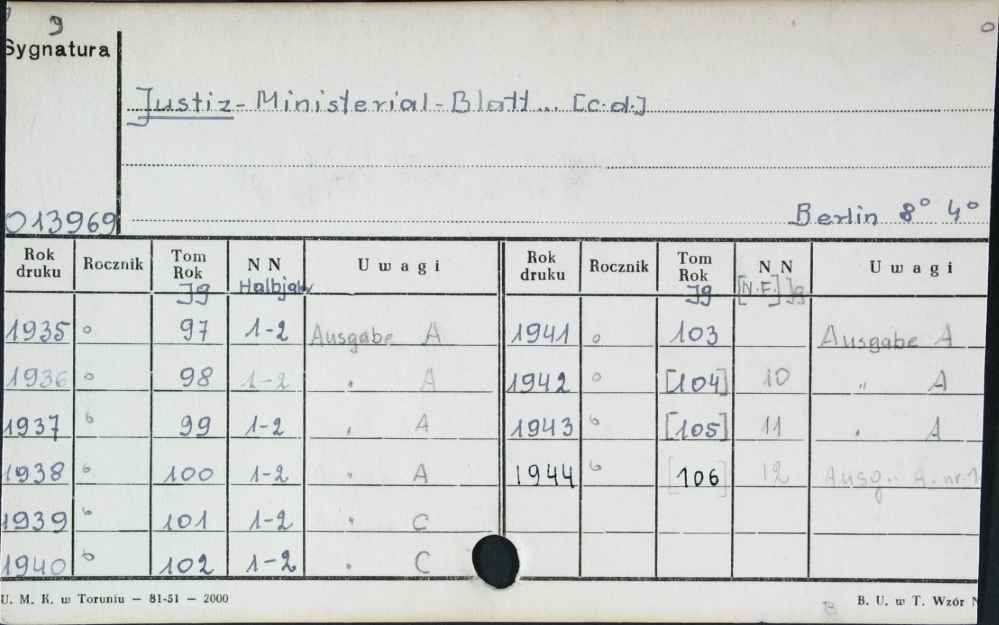 9
Sygnatura
Justiz-Ministerial-Blatt... [c.d.]
013969
Berlin 8° 4°
Rok druku Rocznik Tom Rok NN Uwagi Rok druku Rocznik Tom Rok NN Uwagi
Jg Halbjahr Jg [N.F.] Jg
1935 97 1-2 Ausgabe A 1941 103 Ausgabe A
1936 98 1-2 " A 1942 [104] 10 " A
1937 99 1-2 " A 1943 [105] 11 " A
1938 100 1-2 " A 1944 [106] 12 Ausg. A. nr 1
1939 101 1-2 " C
1940 102 1-2 " C
U. M. K. w Toruniu — 81-51 — 2000
B. U. w T. Wzór